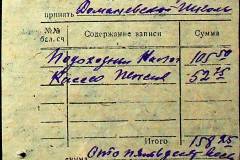 принять Доманевской Школы
№№ бал. сч. Содержание записи Сумма
Подоходный Налог 105 50
Касса 52 75
Итого 158 25
Сто пятьдесят